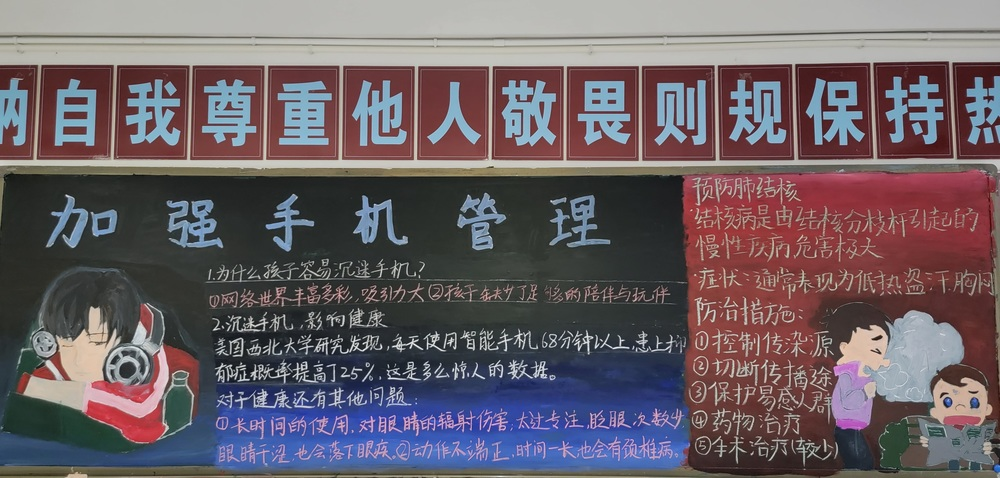 纳自我尊重他人敬畏则规保持热
加强手机管理
1.为什么孩子容易沉迷手机?
①网络世界丰富多彩,吸引力大②孩子缺少了足够的陪伴与玩伴
2.沉迷手机,影响健康
美国西北大学研究发现,每天使用智能手机68分钟以上,患上抑
郁症概率提高了25%,这是多么惊人的数据。
对于健康还有其他问题:
①长时间的使用,对眼睛的辐射伤害,太过专注,眨眼次数少
眼睛干涩也会落下眼疾。②动作不端正,时间一长也会有颈椎病。
预防肺结核
结核病是由结核分枝杆引起的
慢性疾病危害极大
症状:通常表现为低热盗汗胸闷
防治措施:
①控制传染源
②切断传播途
③保护易感人群
④药物治疗
⑤手术治疗(较少)